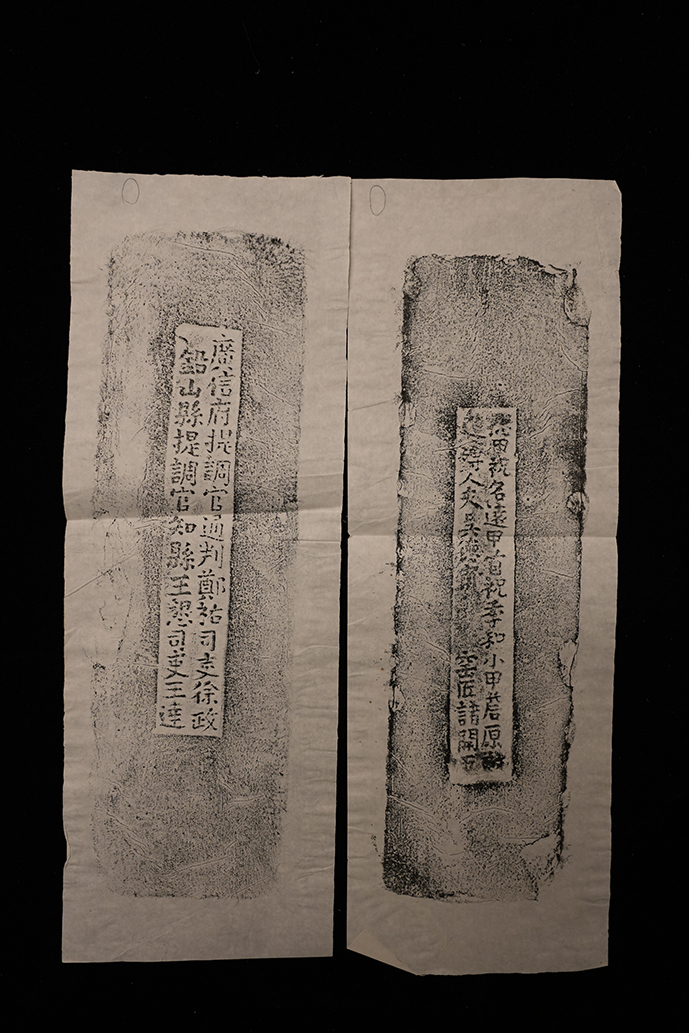 廣信府提調官通判鄭祐司吏徐政
鉛山縣提調官知縣王懇司吏王達
總甲祝名遠甲首祝季和小甲詹原
造磚人夫吳德 窑匠諸開五